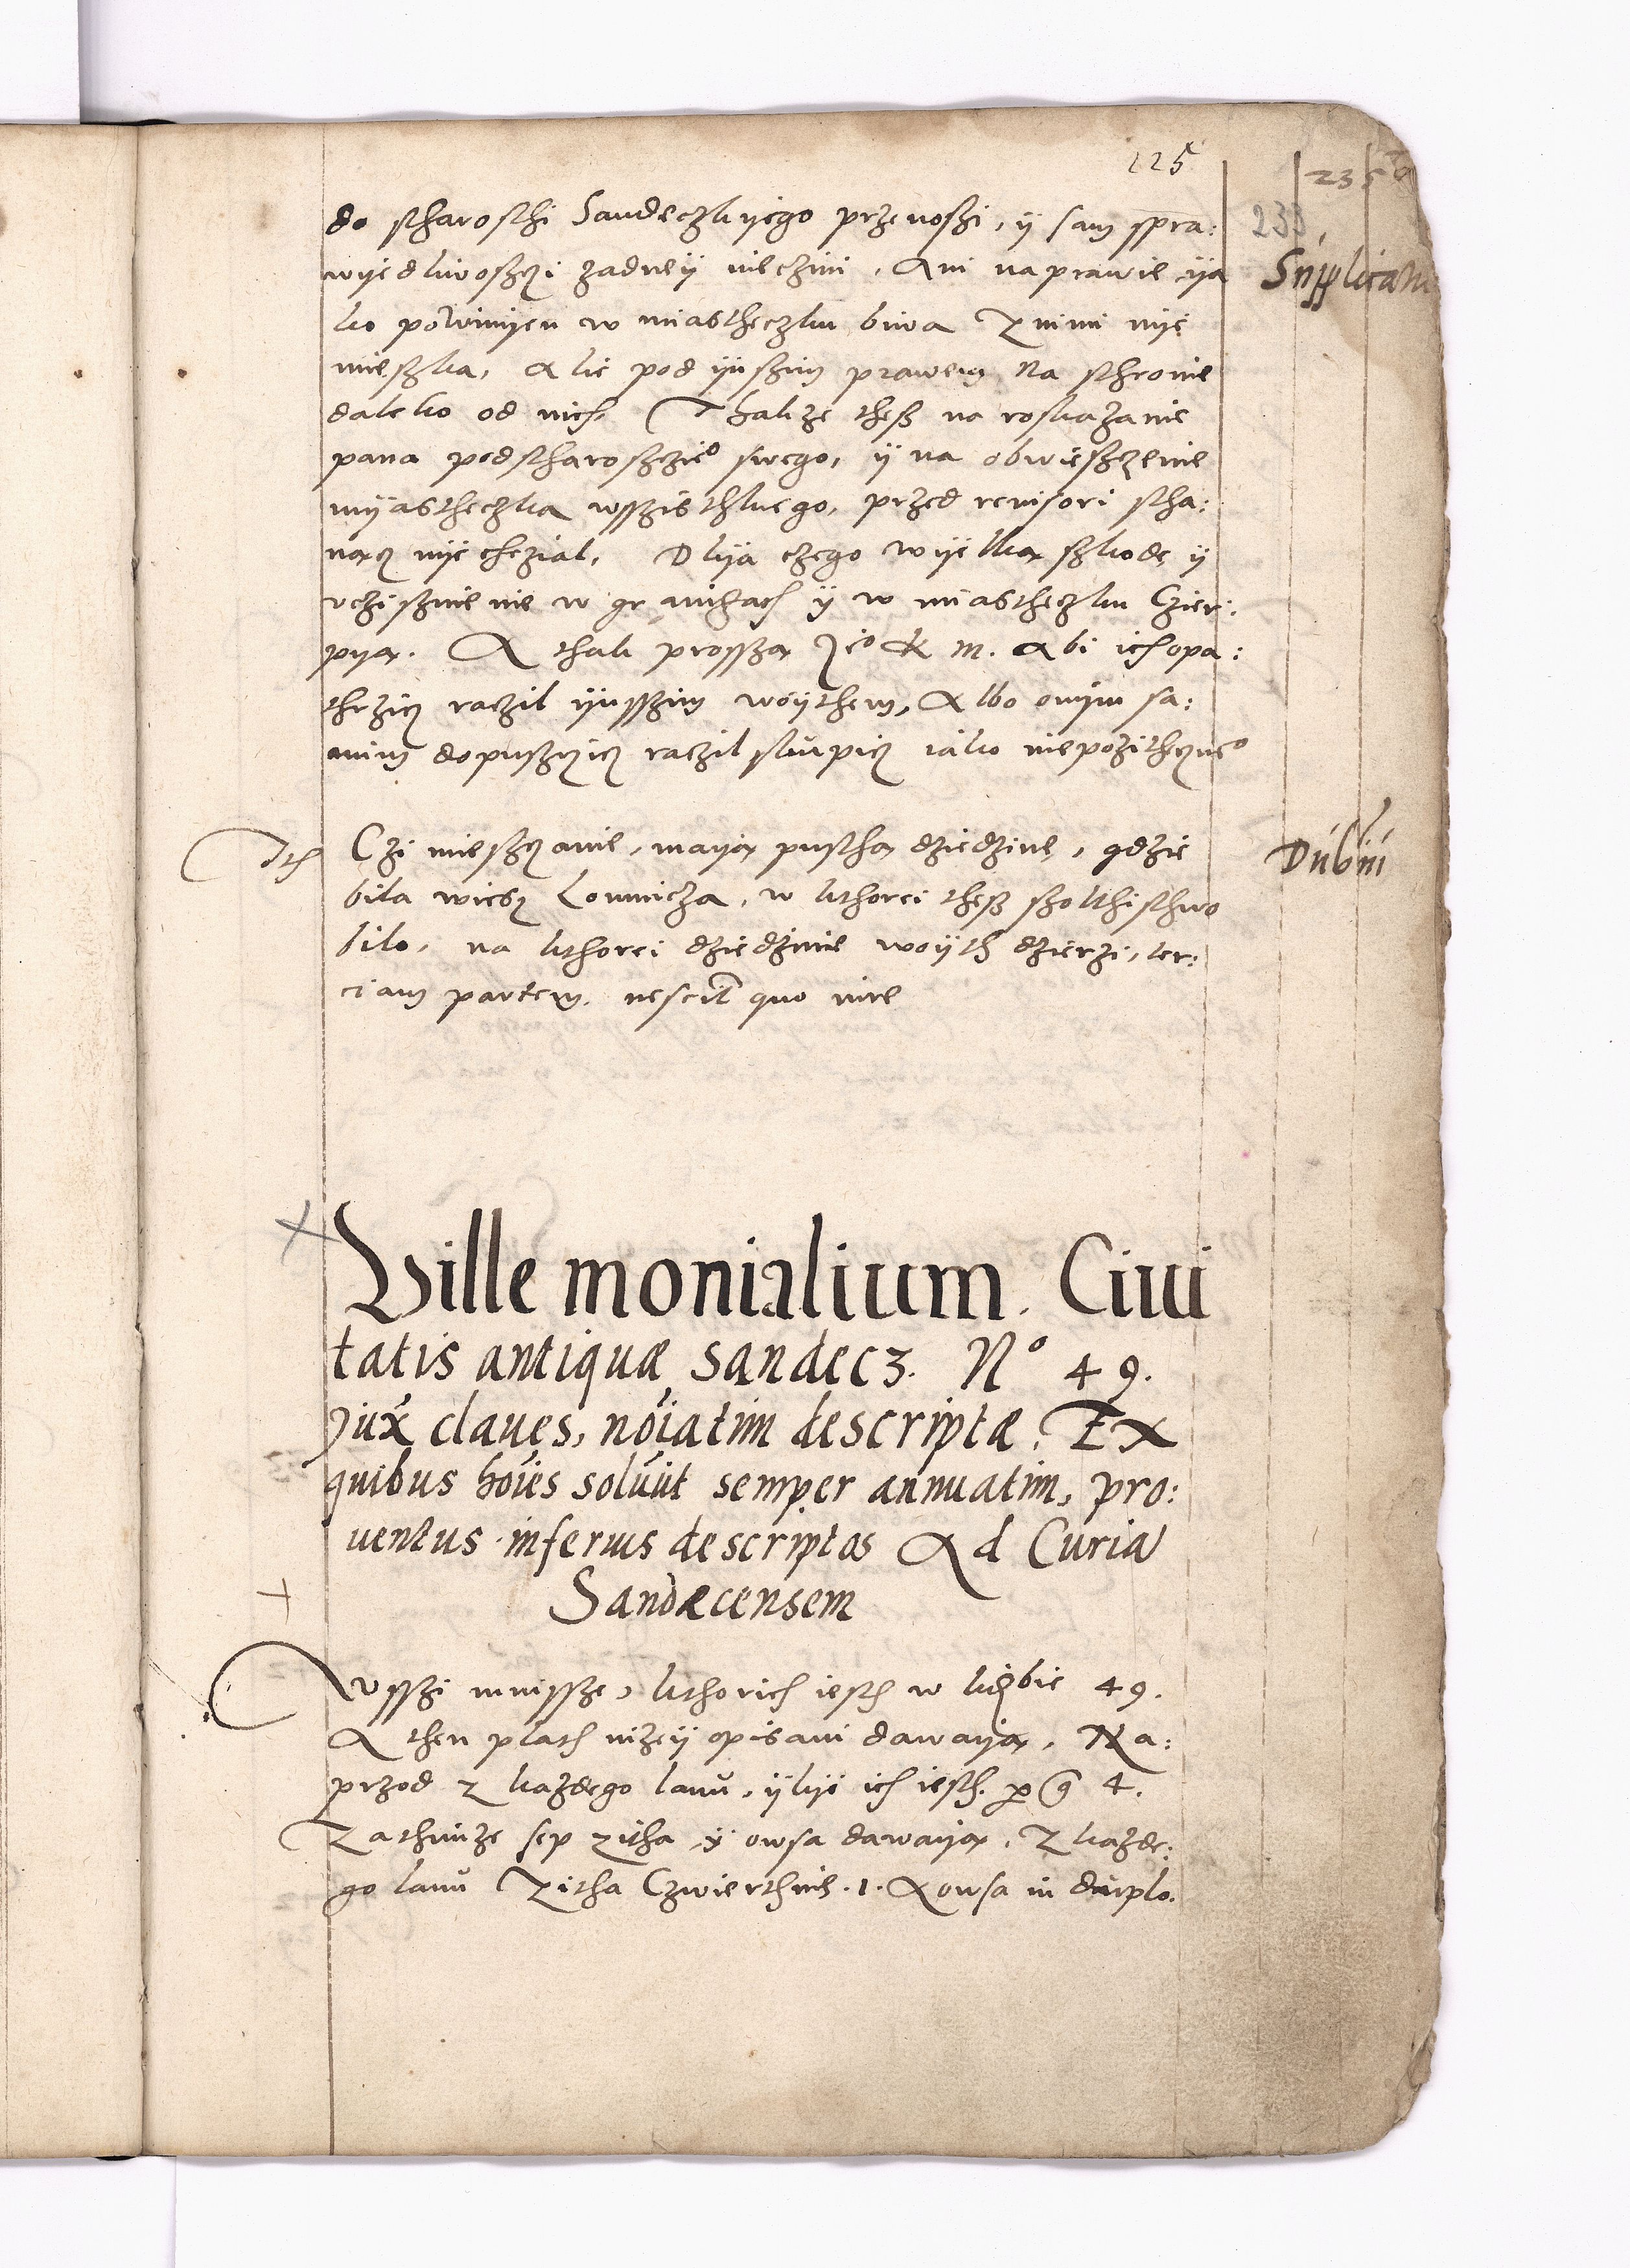 225
235
233
do stharosthi Sandeczkyego przenoszi, ÿ sam spra:
wyedliwosczi zadneÿ nieczini. Ani na prawie ÿa
ko powinnyen w miastheczku biwa Z nimi nye
mieszka, Alie pod ÿnszim prawem Na sthronie
daleko od nich. Thakze thesz na roskazanie
pana podstharosczie⁰ swego, ÿ na obwiesczenie
mÿastheczka wsszisthkiego, przed revisori stha:
nacz nye chczial. Dlÿa czego wyelka szkode ÿ
vczisznienie w granicach ÿ w miastheczku Czier:
pya. A thak prossza Je⁰ K M. Abi ich opa:
thrzicz raczil ÿnsszim woÿthem, Albo onÿm sa:
mim dopusczicz raczil skupicz iako niepozitheczne⁰
Supplican
Ith Czi miesczanie, maya pustha dziedzine, gdzie
bila wiesz Lomnicza, w kthorei thesz szolthisthwo
bilo, na kthorei dziedzinie woÿth dzierzi, ter:
ciam partem. nescit quo iure
Dubiu
Ville monialium. Ciui
tatis antiquæ Sandecz. N⁰ 49.
Jux claues, noiatim descriptæ. Ex
quibus hoies soluut semper annuatim, pro:
uentus inferius descriptos Ad Curia
Sandæcensem
Wsszi mnissze, kthorich iesth w liczbie 49.
A then plath nizeÿ opisani dawaya. Na:
przod z kazdego lanu, ÿlye ich iesth. per g 4.
Zathimze sep zitha ÿ owsa dawaya. Z kazde:
go lanu Zitha Czwierthnie .1. A owsa in duplo.